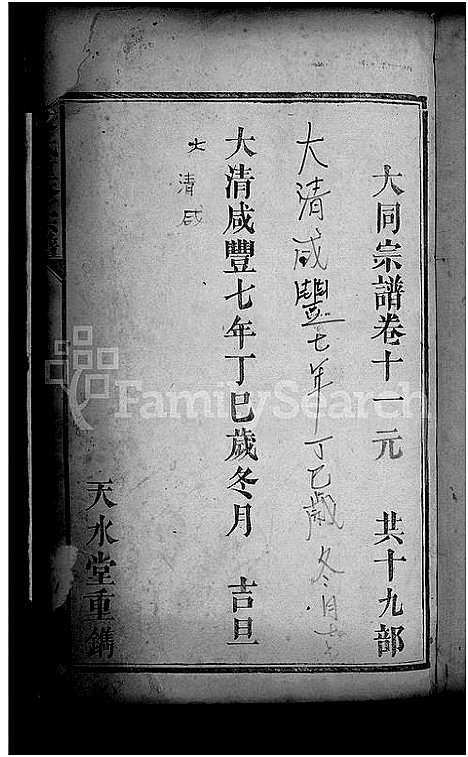 大同宗譜卷十一元 共十九部
大清咸豐七年丁巳歲冬月
大清咸豐七年丁巳歲冬月 吉旦
大清咸
天水堂重鐫
FamilySearch